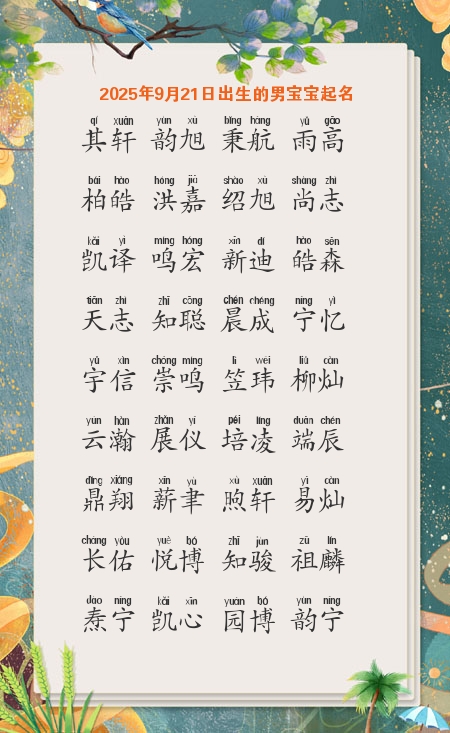 2025年9月21日出生的男宝宝起名
qí xuān yùn xù bǐng háng yǔ gāo
其轩 韵旭 秉航 雨高
bǎi hào hóng jiā shào xù shàng zhì
柏皓 洪嘉 绍旭 尚志
kǎi yì míng hóng xīn dí hào sēn
凯译 鸣宏 新迪 皓森
tiān zhì zhī cōng chén chéng níng yì
天志 知聪 晨成 宁忆
yǔ xìn chóng míng lì wěi liǔ càn
宇信 崇鸣 笠玮 柳灿
yún hàn zhǎn yí péi líng duān chén
云瀚 展仪 培凌 端辰
dǐng xiáng xīn yù xù xuān yì càn
鼎翔 薪聿 煦轩 易灿
cháng yòu yuè bó zhī jùn zǔ lín
长佑 悦博 知骏 祖麟
dào níng kǎi xīn yuán bó yùn níng
焘宁 凯心 园博 韵宁